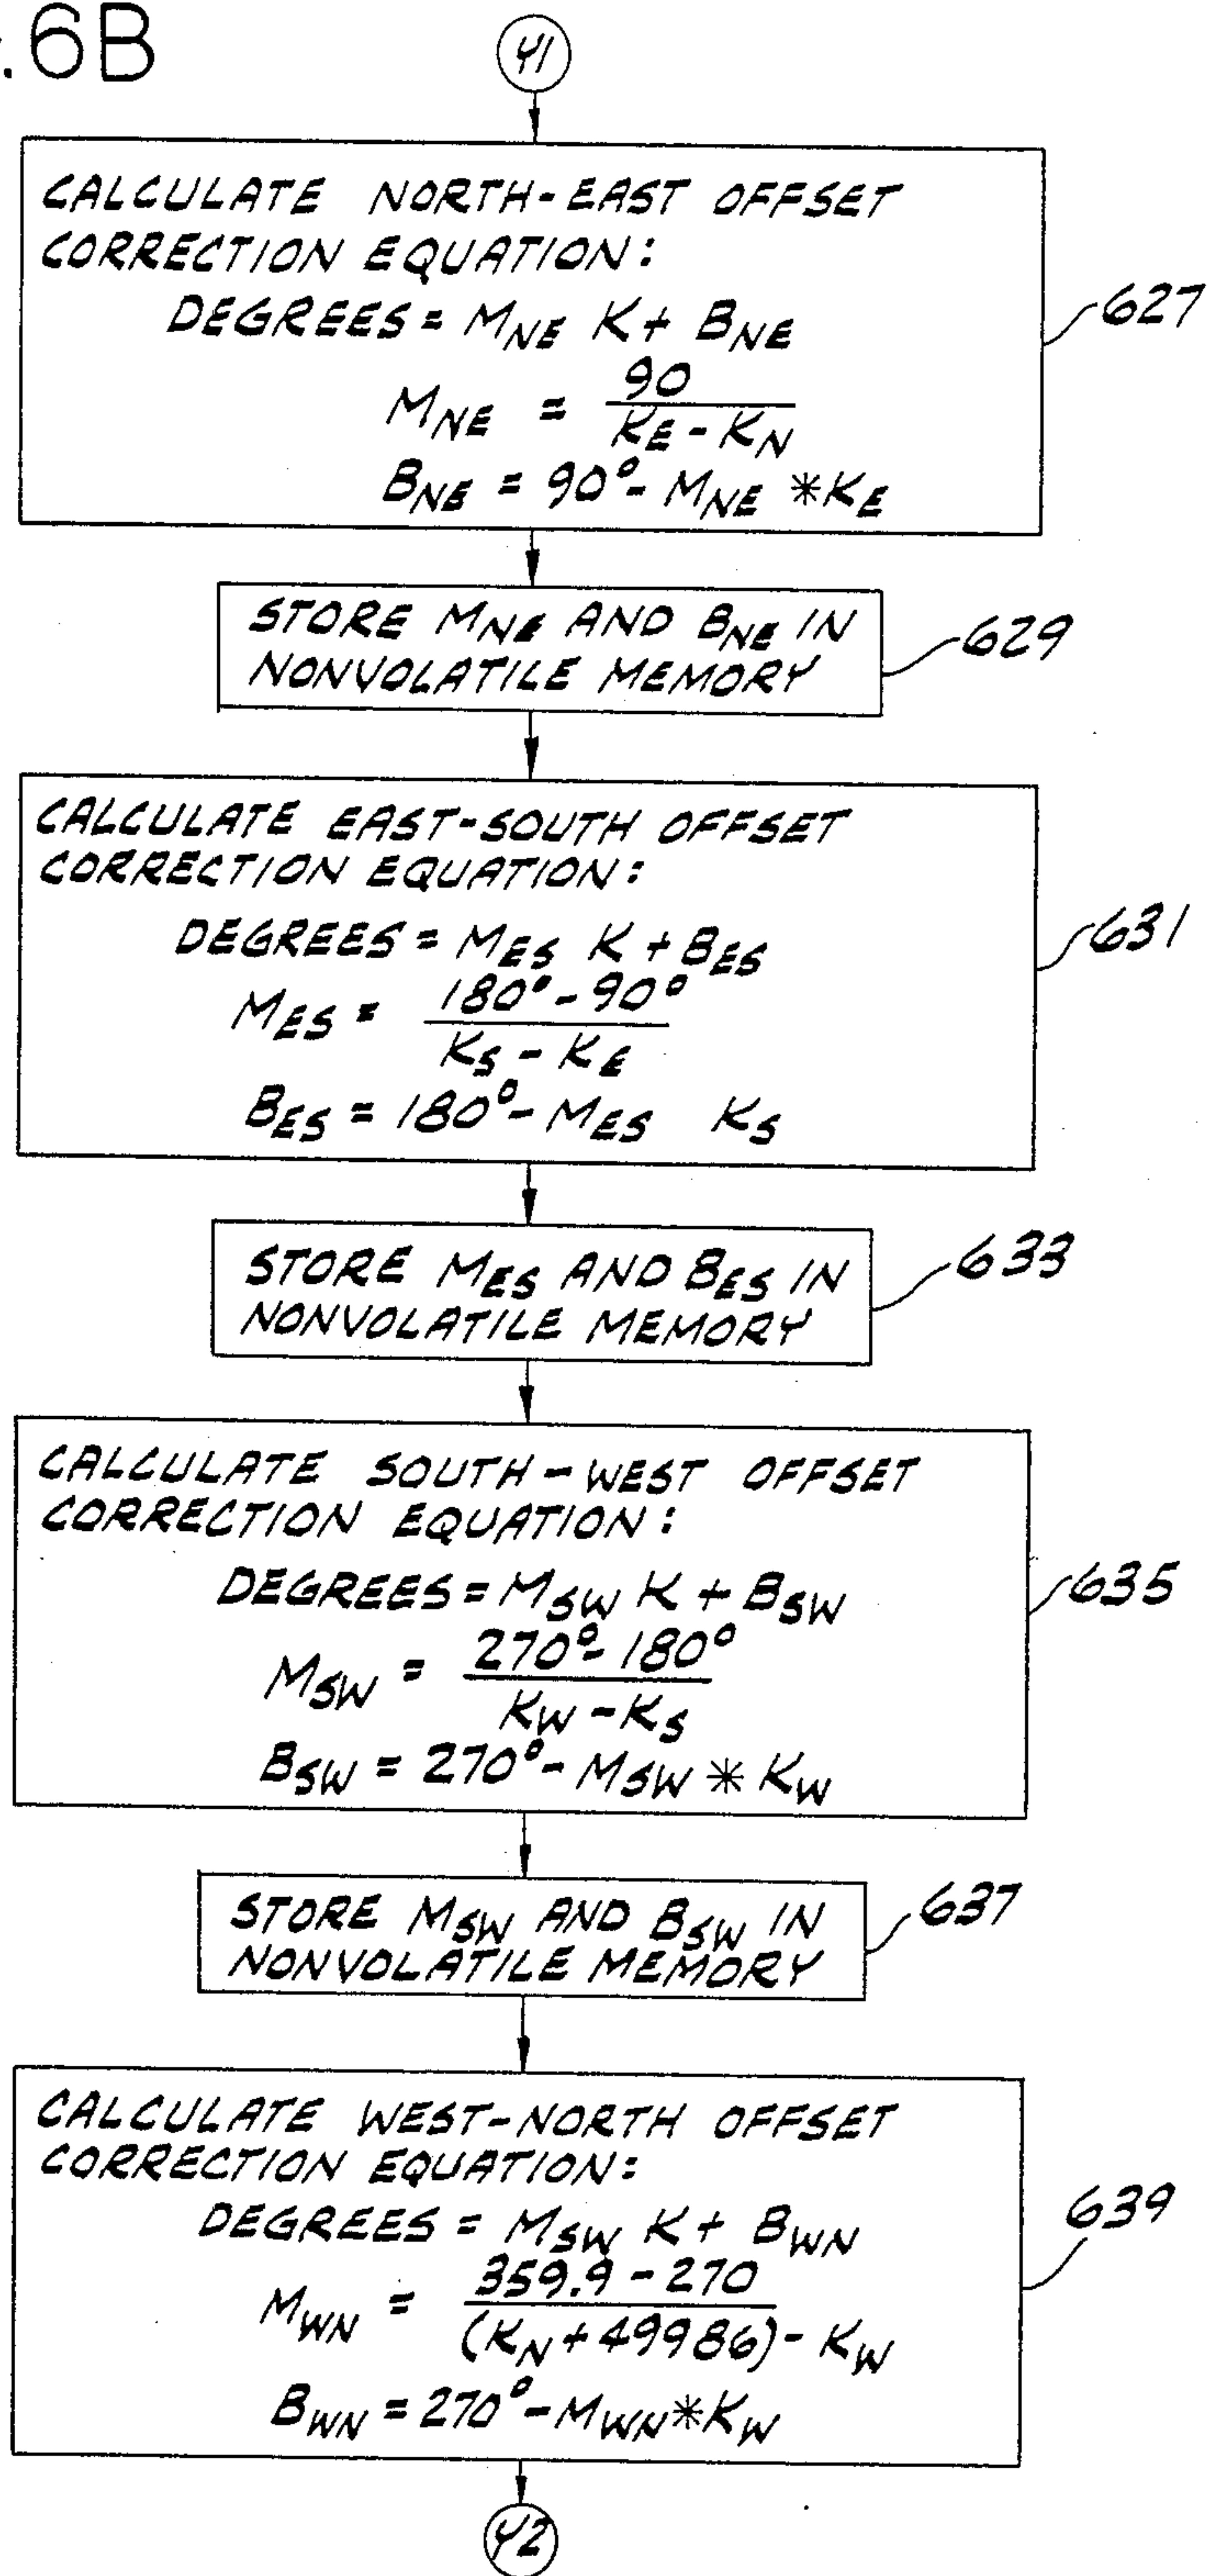 .6B
Y1
CALCULATE NORTH-EAST OFFSET
CORRECTION EQUATION:
DEGREES = M_NE K + B_NE
M_NE = 90 / K_E - K_N
B_NE = 90° - M_NE * K_E
627
STORE M_NE AND B_NE IN
NONVOLATILE MEMORY
629
CALCULATE EAST-SOUTH OFFSET
CORRECTION EQUATION:
DEGREES = M_ES K + B_ES
M_ES = 180° - 90° / K_S - K_E
B_ES = 180° - M_ES K_S
631
STORE M_ES AND B_ES IN
NONVOLATILE MEMORY
633
CALCULATE SOUTH-WEST OFFSET
CORRECTION EQUATION:
DEGREES = M_SW K + B_SW
M_SW = 270° - 180° / K_W - K_S
B_SW = 270° - M_SW * K_W
635
STORE M_SW AND B_SW IN
NONVOLATILE MEMORY
637
CALCULATE WEST-NORTH OFFSET
CORRECTION EQUATION:
DEGREES = M_SW K + B_WN
M_WN = 359.9 - 270 / (K_N + 49986) - K_W
B_WN = 270° - M_WN * K_W
639
Y2